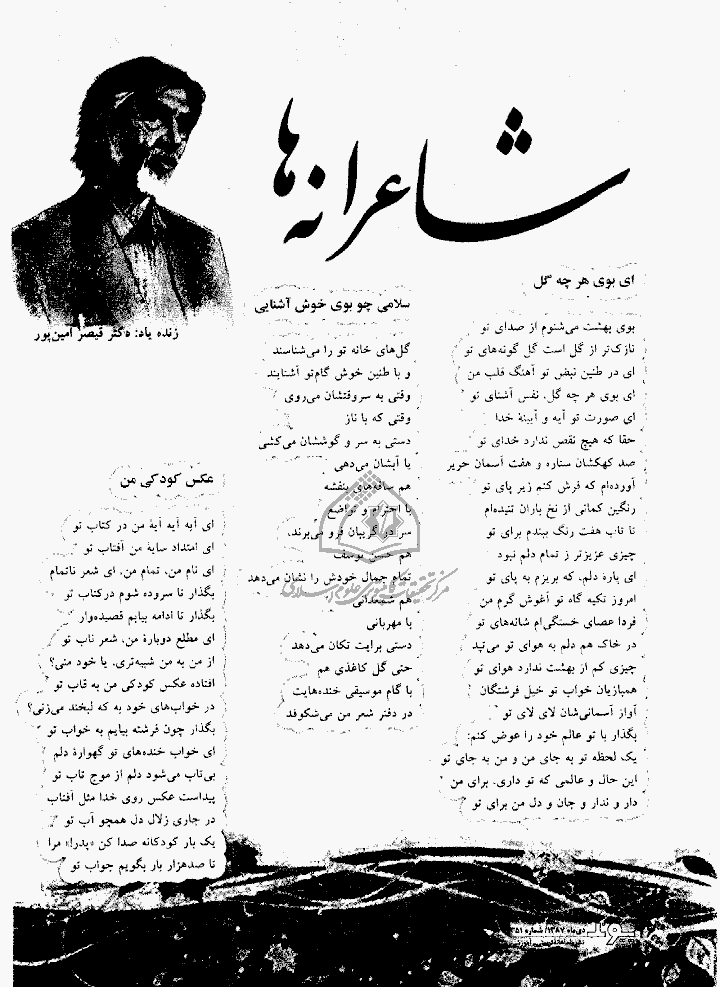 شاعرانه‌ها
زنده یاد: دکتر قیصر امین‌پور
ای بوی هر چه گل
بوی بهشت می‌شنوم از صدای تو
نازک‌تر از گل است گل گونه‌های تو
ای در طنین نبض تو آهنگ قلب من
ای بوی هر چه گل، نفس آشنای تو
ای صورت تو آیه و آیینهٔ خدا
حقا که هیچ نقص ندارد خدای تو
صد کهکشان ستاره و هفت آسمان حریر
آورده‌ام که فرش کنم زیر پای تو
رنگین کمانی از نخ باران تنیده‌ام
تا تاب هفت رنگ ببندم برای تو
چیزی عزیزتر ز تمام دلم نبود
ای پارهٔ دلم، که بریزم به پای تو
امروز تکیه گاه تو آغوش گرم من
فردا عصای خستگی‌ام شانه‌های تو
در خاک هم دلم به هوای تو می‌تپد
چیزی کم از بهشت ندارد هوای تو
همبازیان خواب تو خیل فرشتگان
آواز آسمانی‌شان لای لای تو
بگذار با تو عالم خود را عوض کنم:
یک لحظه تو به جای من و من به جای تو
این حال و عالمی که تو داری، برای من
دار و ندار و جان و دل من برای تو
سلامی چو بوی خوش آشنایی
گل‌های خانه تو را می‌شناسند
و با طنین خوش گام‌تو آشنایند
وقتی به سروقتشان می‌روی
وقتی که با ناز
دستی به سر و گوششان می‌کشی
یا آبشان می‌دهی
هم ساقه‌های بنفشه
با احترام و تواضع
سر در گریبان فرو می‌برند،
هم حسن یوسف
تمام جمال خودش را نشان می‌دهد
هم شمعدانی
با مهربانی
دستی برایت تکان می‌دهد
حتی گل کاغذی هم
با گام موسیقی خنده‌هایت
در دفتر شعر من می‌شکوفد
عکس کودکی من
ای آیه آیه آیهٔ من در کتاب تو
ای امتداد سایهٔ من آفتاب تو
ای نام من، تمام من، ای شعر ناتمام
بگذار تا سروده شوم درکتاب تو
بگذار تا ادامه بیابم قصیده‌وار
ای مطلع دوبارهٔ من، شعر ناب تو
از من به من شبیه‌تری، یا خود منی؟
افتاده عکس کودکی من به قاب تو
در خواب‌های خود به که لبخند می‌زنی؟
بگذار چون فرشته بیایم به خواب تو
ای خواب خنده‌های تو گهوارهٔ دلم
بی‌تاب می‌شود دلم از موج تاب تو
پیداست عکس روی خدا مثل آفتاب
در جاری زلال دل همچو آب تو
یک بار کودکانه صدا کن «پدر!» مرا
تا صدهزار بار بگویم جواب تو
مرکز تحقیقات کامپیوتری علوم اسلامی
دی‌ماه ۱۳۸۷/ شماره ۲۵۱